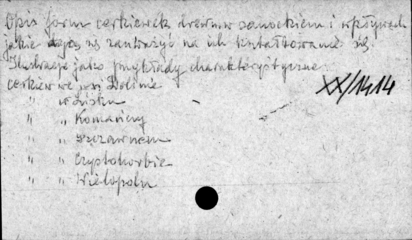 Opis form cerkiewek drewn. w sanockiem i wpływach
jakie dają się zauważyć na ich kształtowanie się.
Ilustracje jako przykłady charakterystyczne
cerkiew we wsi Dolinie
XX/1414
" w
" " Komańczy
" " Szczawnem
" " Czystohorbie
" " Wielopolu